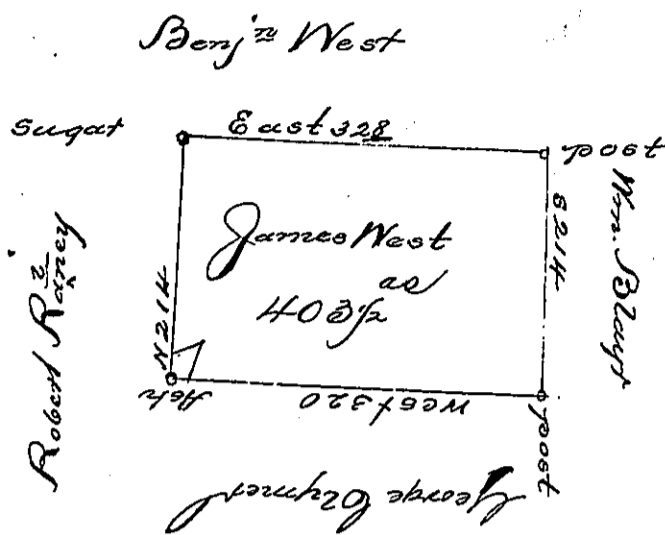 Benjⁿ West
Sugar
East 328
post
Robert Raney
N 214
James West
as
403½
S 214
Wm. Blayr
Ash
West 320
post
George Clymer